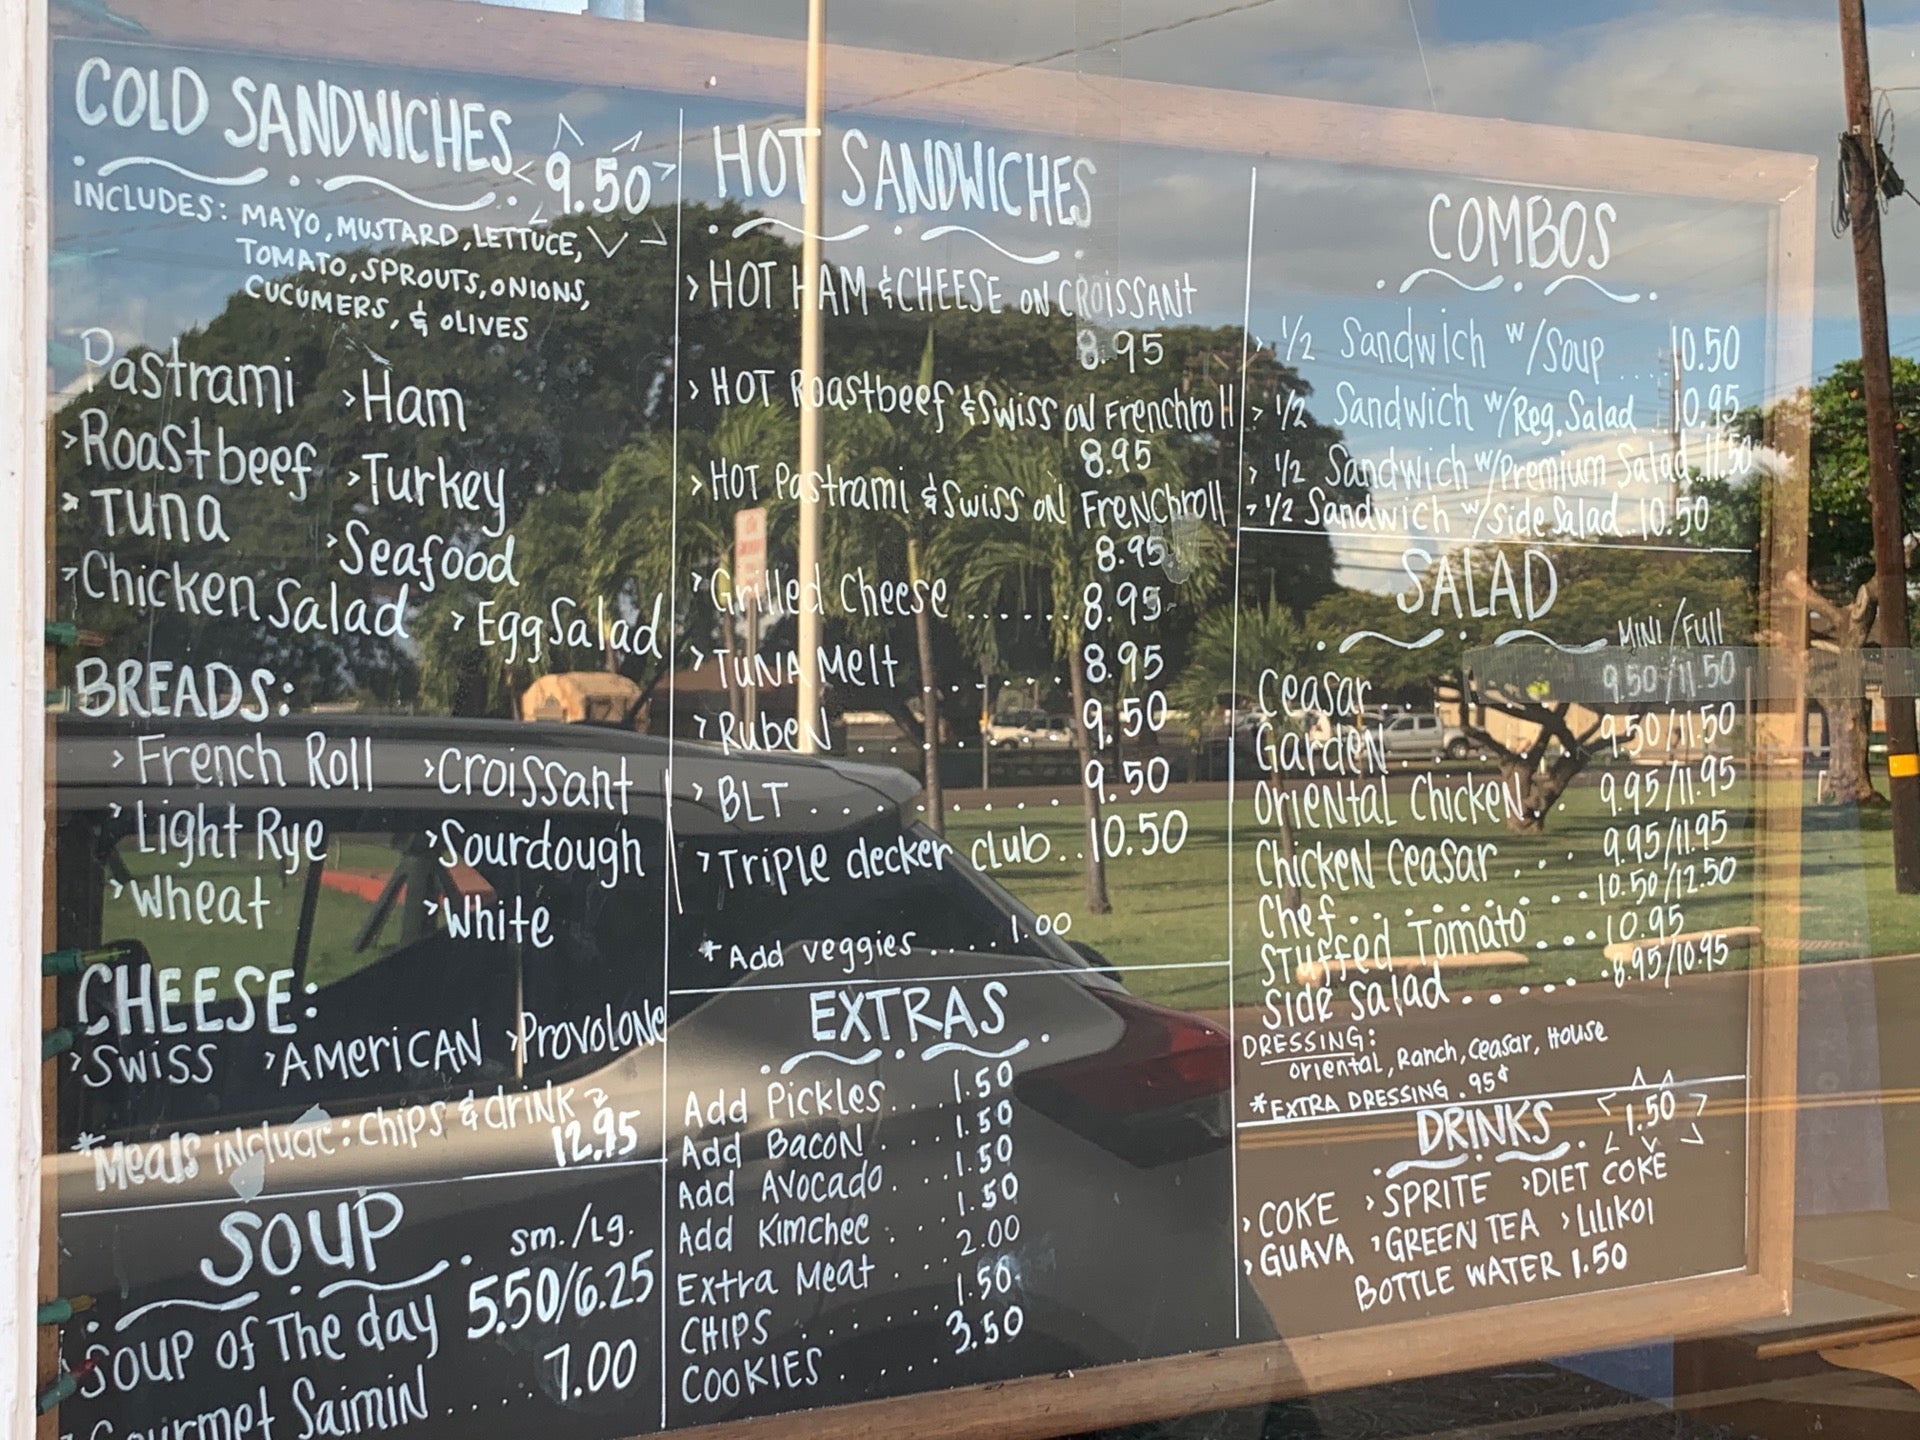 COLD SANDWICHES 9.50
INCLUDES: MAYO, MUSTARD, LETTUCE,
TOMATO, SPROUTS, ONIONS,
CUCUMERS, & OLIVES
Pastrami >Ham
>Roastbeef >Turkey
>Tuna >Seafood
>Chicken Salad >Egg Salad
BREADS:
>French Roll >Croissant
>Light Rye >Sourdough
>Wheat >White
CHEESE:
>Swiss >American >Provolone
*Meals include: chips & drink
12.95
SOUP sm./Lg.
Soup of The day 5.50/6.25
Gourmet Saimin .... 7.00
HOT SANDWICHES
>HOT HAM & CHEESE ON CROISSANt
8.95
>HOT Roastbeef & Swiss on Frenchroll
8.95
>HOT Pastrami & Swiss on Frenchroll
8.95
>Grilled Cheese ...... 8.95
>Tuna Melt ...... 8.95
>Ruben ....... 9.50
>BLT ......... 9.50
>Triple decker club..10.50
*Add veggies .... 1.00
EXTRAS
Add Pickles... 1.50
Add Bacon ... 1.50
Add Avocado... 1.50
Add Kimchee ... 1.50
Extra Meat ... 2.00
CHIPS ...... 1.50
COOKIES .... 3.50
COMBOS
>1/2 Sandwich w/Soup ...10.50
>1/2 Sandwich w/Reg. Salad .10.95
>1/2 Sandwich w/Premium Salad 11.50
>1/2 Sandwich w/Side Salad..10.50
SALAD
MINI/Full
Ceasar... 9.50/11.50
Garden... 9.50/11.50
Oriental Chicken.. 9.95/11.95
Chicken Ceasar ... 9.95/11.95
Chef......... 10.50/12.50
Stuffed Tomato ...10.95
Side Salad...... 8.95/10.95
DRESSING:
Oriental, Ranch, Ceasar, House
*EXTRA DRESSING .95¢
DRINKS . 1.50
>COKE >SPRITE >DIET COKE
>GUAVA >GREEN TEA >LILIKOI
BOTTLE WATER 1.50